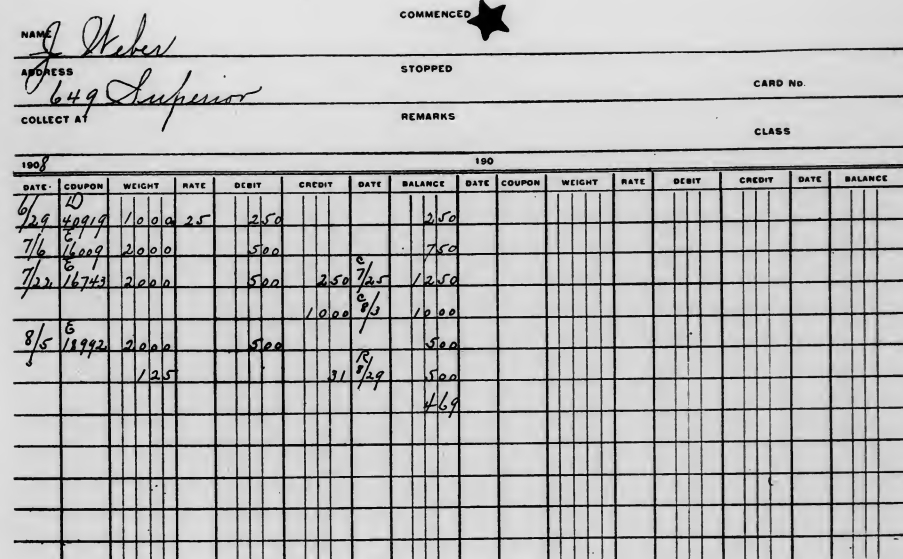 COMMENCED
NAME J Weber
ADDRESS 649 Superior STOPPED CARD NO.
COLLECT AT REMARKS CLASS
1908 190
DATE. COUPON WEIGHT RATE DEBIT CREDIT DATE BALANCE DATE COUPON WEIGHT RATE DEBIT CREDIT DATE BALANCE
6/29 D 40919 1000 25 250 250
7/6 E 16009 2000 500 750
7/22 E 16743 2000 500 250 C 7/25 1250
1000 C 8/3 1000
8/5 E 18992 2000 500 500
125 31 R 8/29 500
469